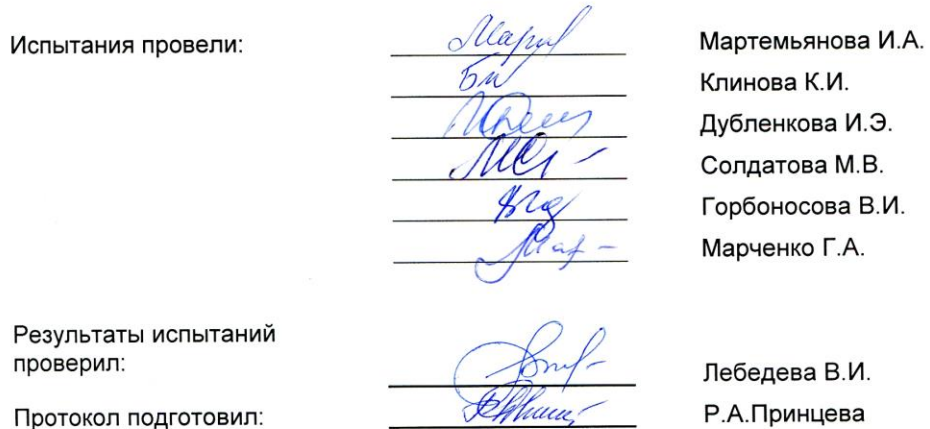 Испытания провели: Мартемьянова И.А.
Клинова К.И.
Дубленкова И.Э.
Солдатова М.В.
Горбоносова В.И.
Марченко Г.А.
Результаты испытаний
проверил: Лебедева В.И.
Протокол подготовил: Р.А.Принцева